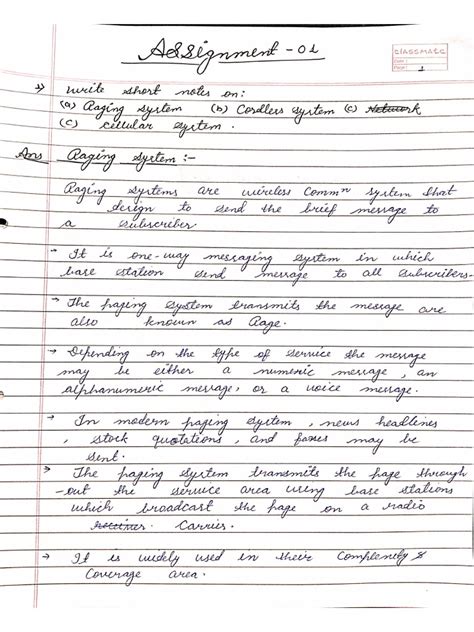 Assignment - 01
classmate
Date :
Page : 1
1) write short notes on:
(a) Paging System (b) Cordless System (c) Network
(c) cellular System.
Ans Paging System :-
Paging Systems are wireless Commⁿ System that
design to send the brief message to
a Subscriber.
→ It is one-way messaging System in which
base station send message to all subscribers-
→ The paging System transmits the message are
also known as Page.
→ Depending on the type of service the message
may be either a numeric message, an
alphanumeric message, or a voice message.
→ In modern paging System, news headlines
, stock quotations, and faxes may be
sent.
→ The paging System transmits the page through
-out the service area using base stations
which broadcast the page on a radio
Carrier.
→ It is widely used in their &
Coverage area.